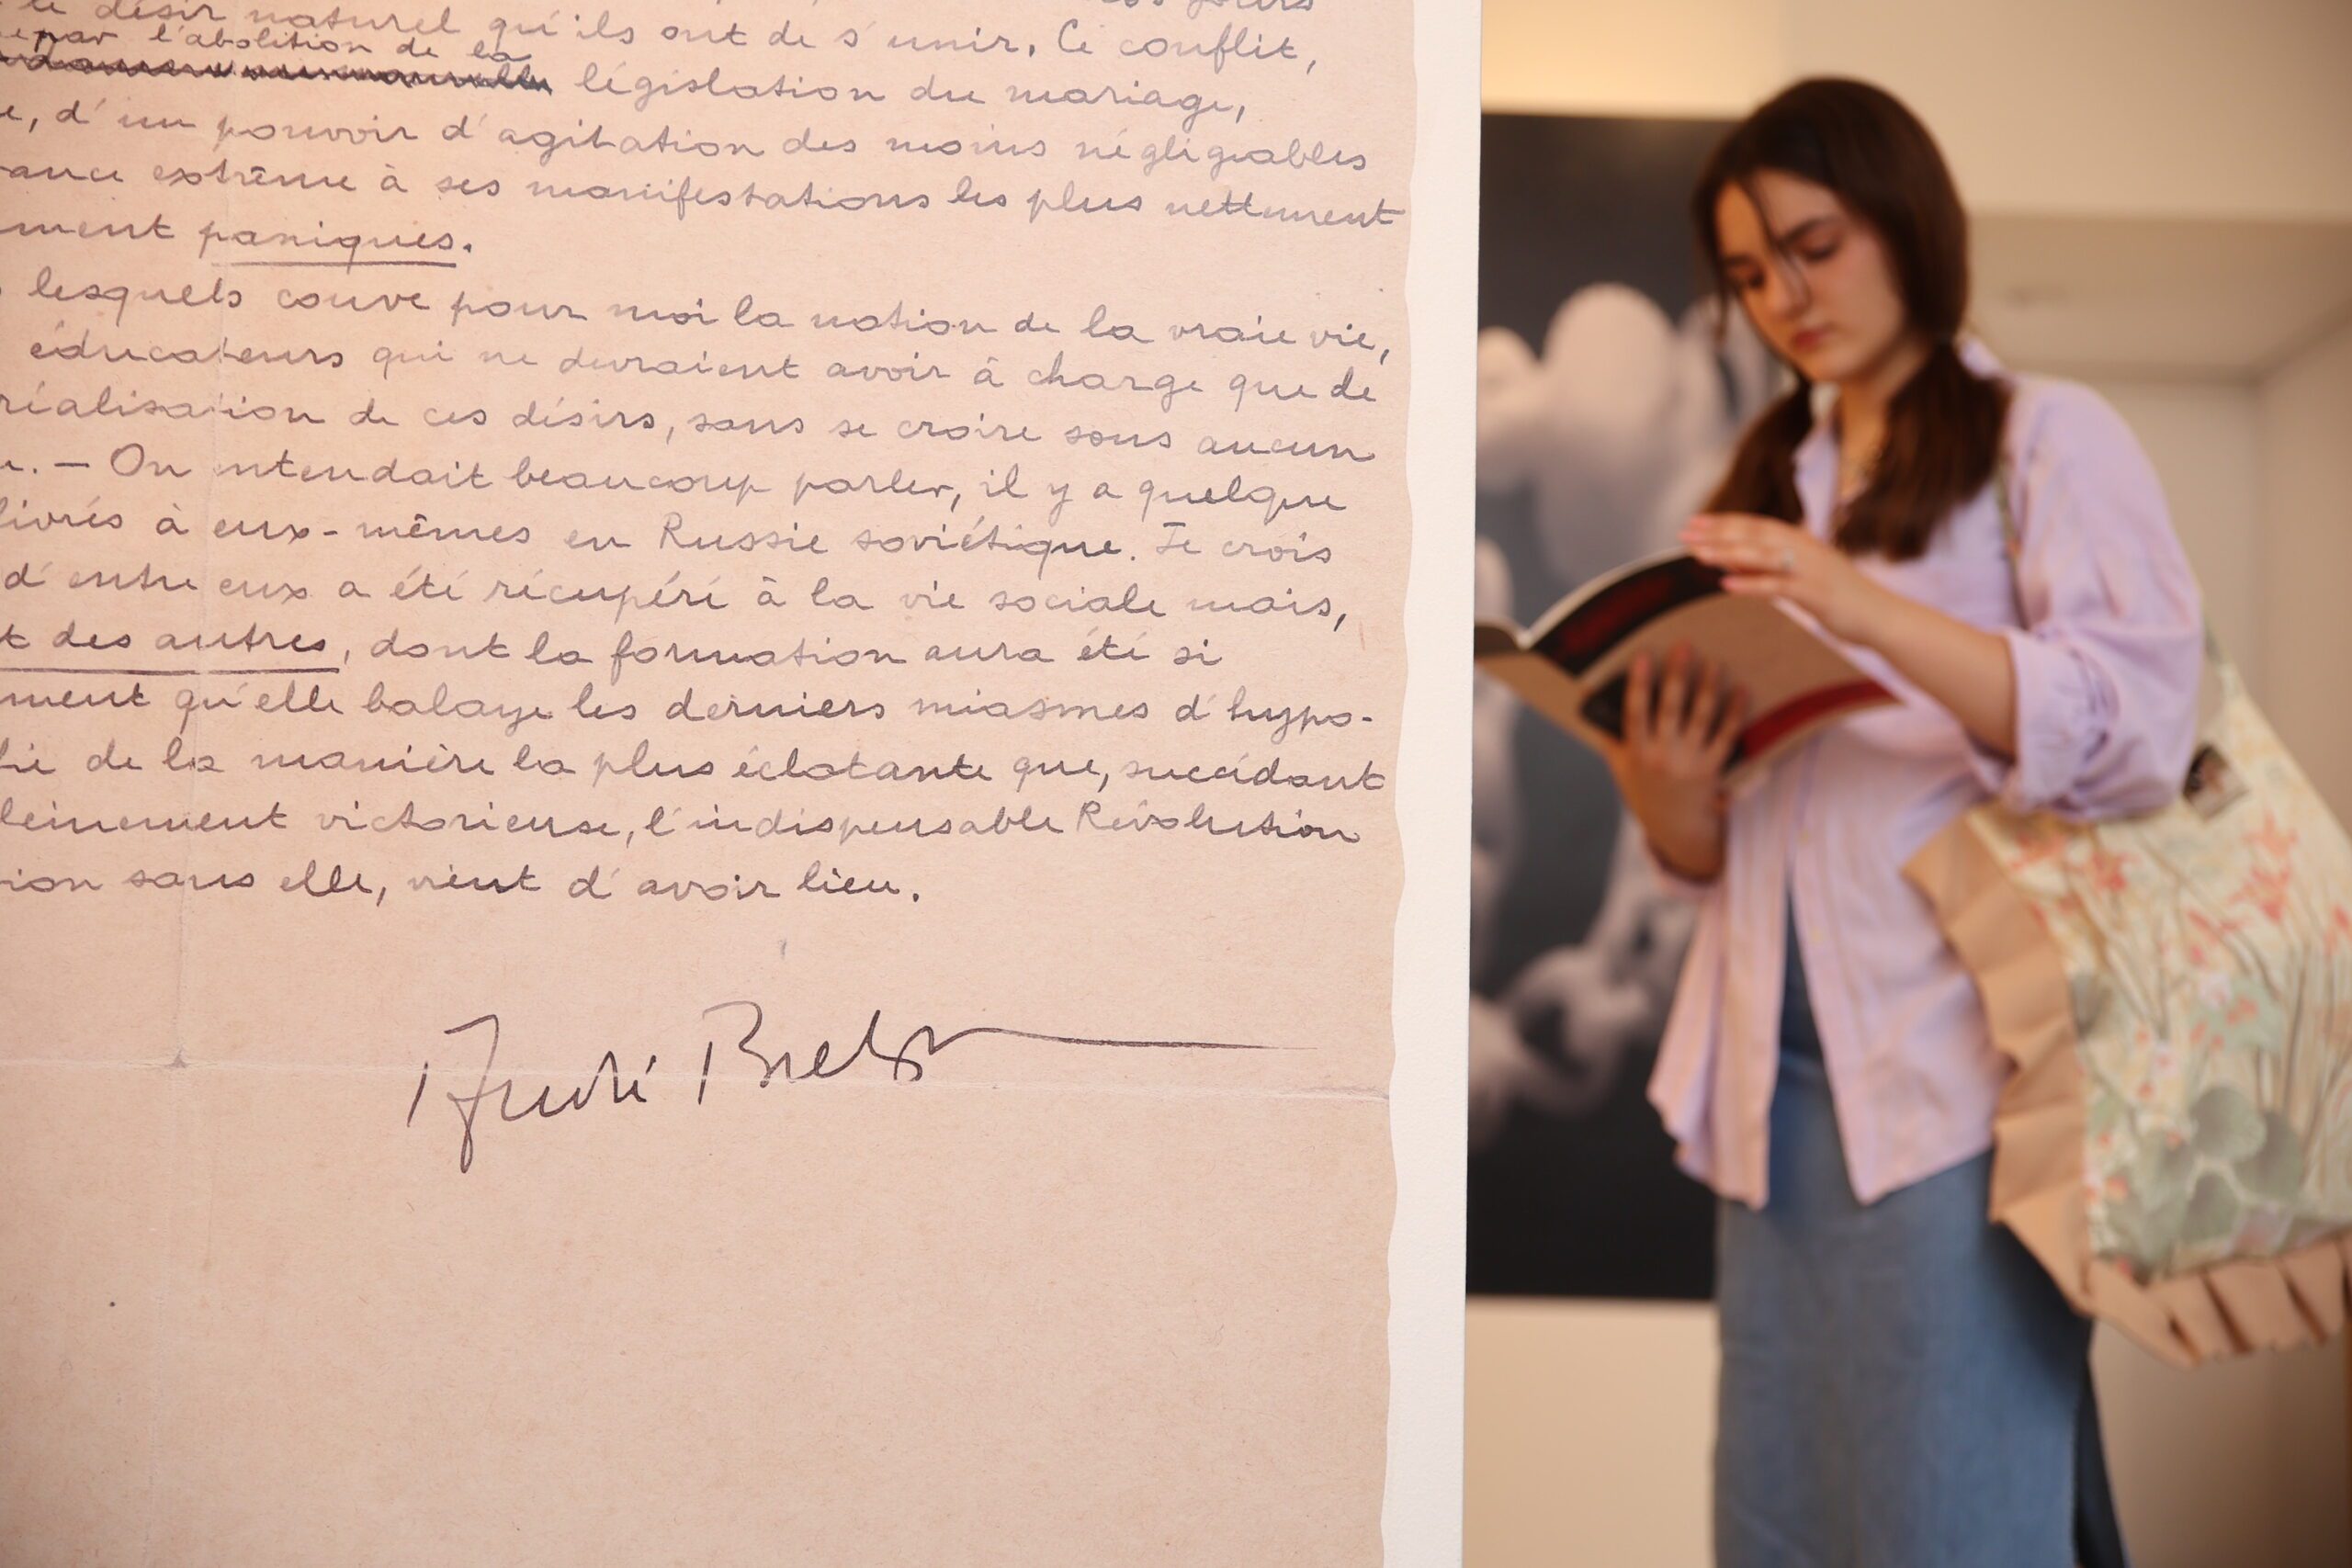 le désir naturel qu'ils ont de s'unir. Ce conflit,
par l'abolition de la
législation du mariage,
e, d'un pouvoir d'agitation des moins négligeables
ance extrême à ses manifestations les plus nettement
ment paniques.
lesquels couve pour moi la notion de la vraie vie,
éducateurs qui ne devraient avoir à charge que de
réalisation de ces désirs, sans se croire sous aucun
. — On entendait beaucoup parler, il y a quelque
livrés à eux-mêmes en Russie soviétique. Je crois
d'entre eux a été récupéré à la vie sociale mais,
t des autres, dont la formation aura été si
ment qu'elle balaye les derniers miasmes d'hypo-
de la manière la plus éclatante que, succédant
leinement victorieuse, l'indispensable Révolution
ion sans elle, vient d'avoir lieu.
André Breton